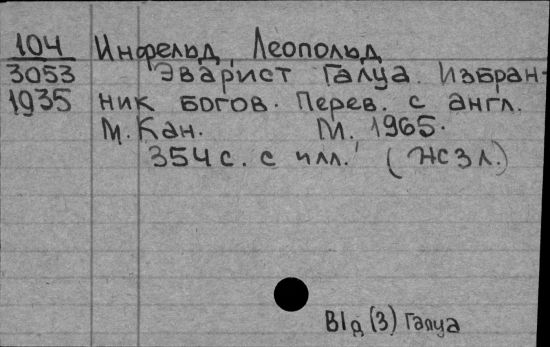 104 Инфельд, Леопольд
3053 Эварист Галуа. Избран-
1935 ник богов. Перев. с англ.
М. Кан. М. 1965.
354 с. с илл. (ЖЗЛ.)
BIд (3) Галуа